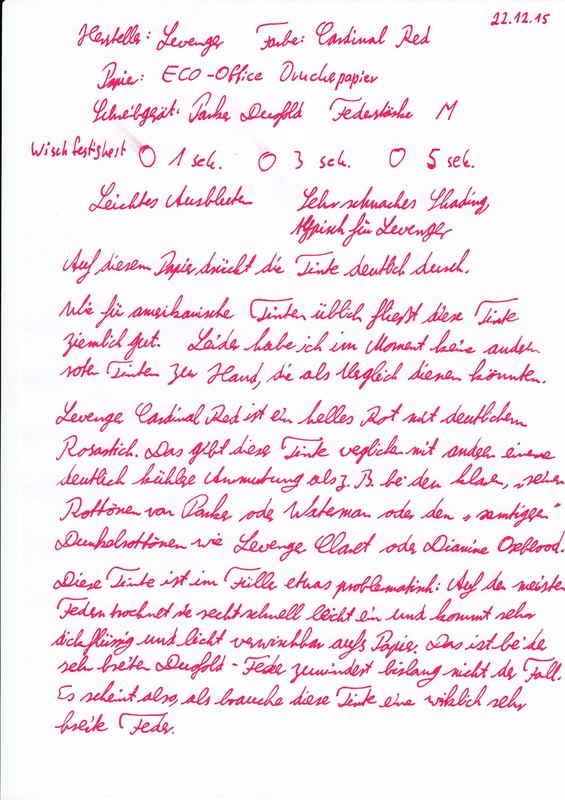 22.12.15
Hersteller: Levenger Farbe: Cardinal Red
Papier: ECO-Office Druckerpapier
Schreibgerät: Parker Duofold Federstärke M
Wischfestigkeit O 1 sek. O 3 sek. O 5 sek.
Leichtes Ausbluten Sehr schwaches Shading,
typisch für Levenger
Auf diesem Papier drückt die Tinte deutlich durch.
Wie für amerikanische Tinten üblich fließt diese Tinte
ziemlich gut. Leider habe ich im Moment keine anderen
roten Tinten zur Hand, die als Vergleich dienen könnten.
Levenger Cardinal Red ist ein helles Rot mit deutlichem
Rosastich. Das gibt dieser Tinte verglichen mit anderen eine
deutlich kühlere Anmutung als z. B. bei den klaren, „reinen
Rottönen von Parker oder Waterman oder den „samtigen"
Dunkelrottönen wie Levenger Claret oder Diamine Oxblood.
Diese Tinte ist im Füller etwas problematisch: Auf den meisten
Federn trocknet sie recht schnell leicht ein und kommt sehr
dickflüssig und leicht verwischbar aufs Papier. Das ist bei der
sehr breiten Duofold-Feder zumindest bislang nicht der Fall.
Es scheint also, als brauche diese Tinte eine wirklich sehr
breite Feder.